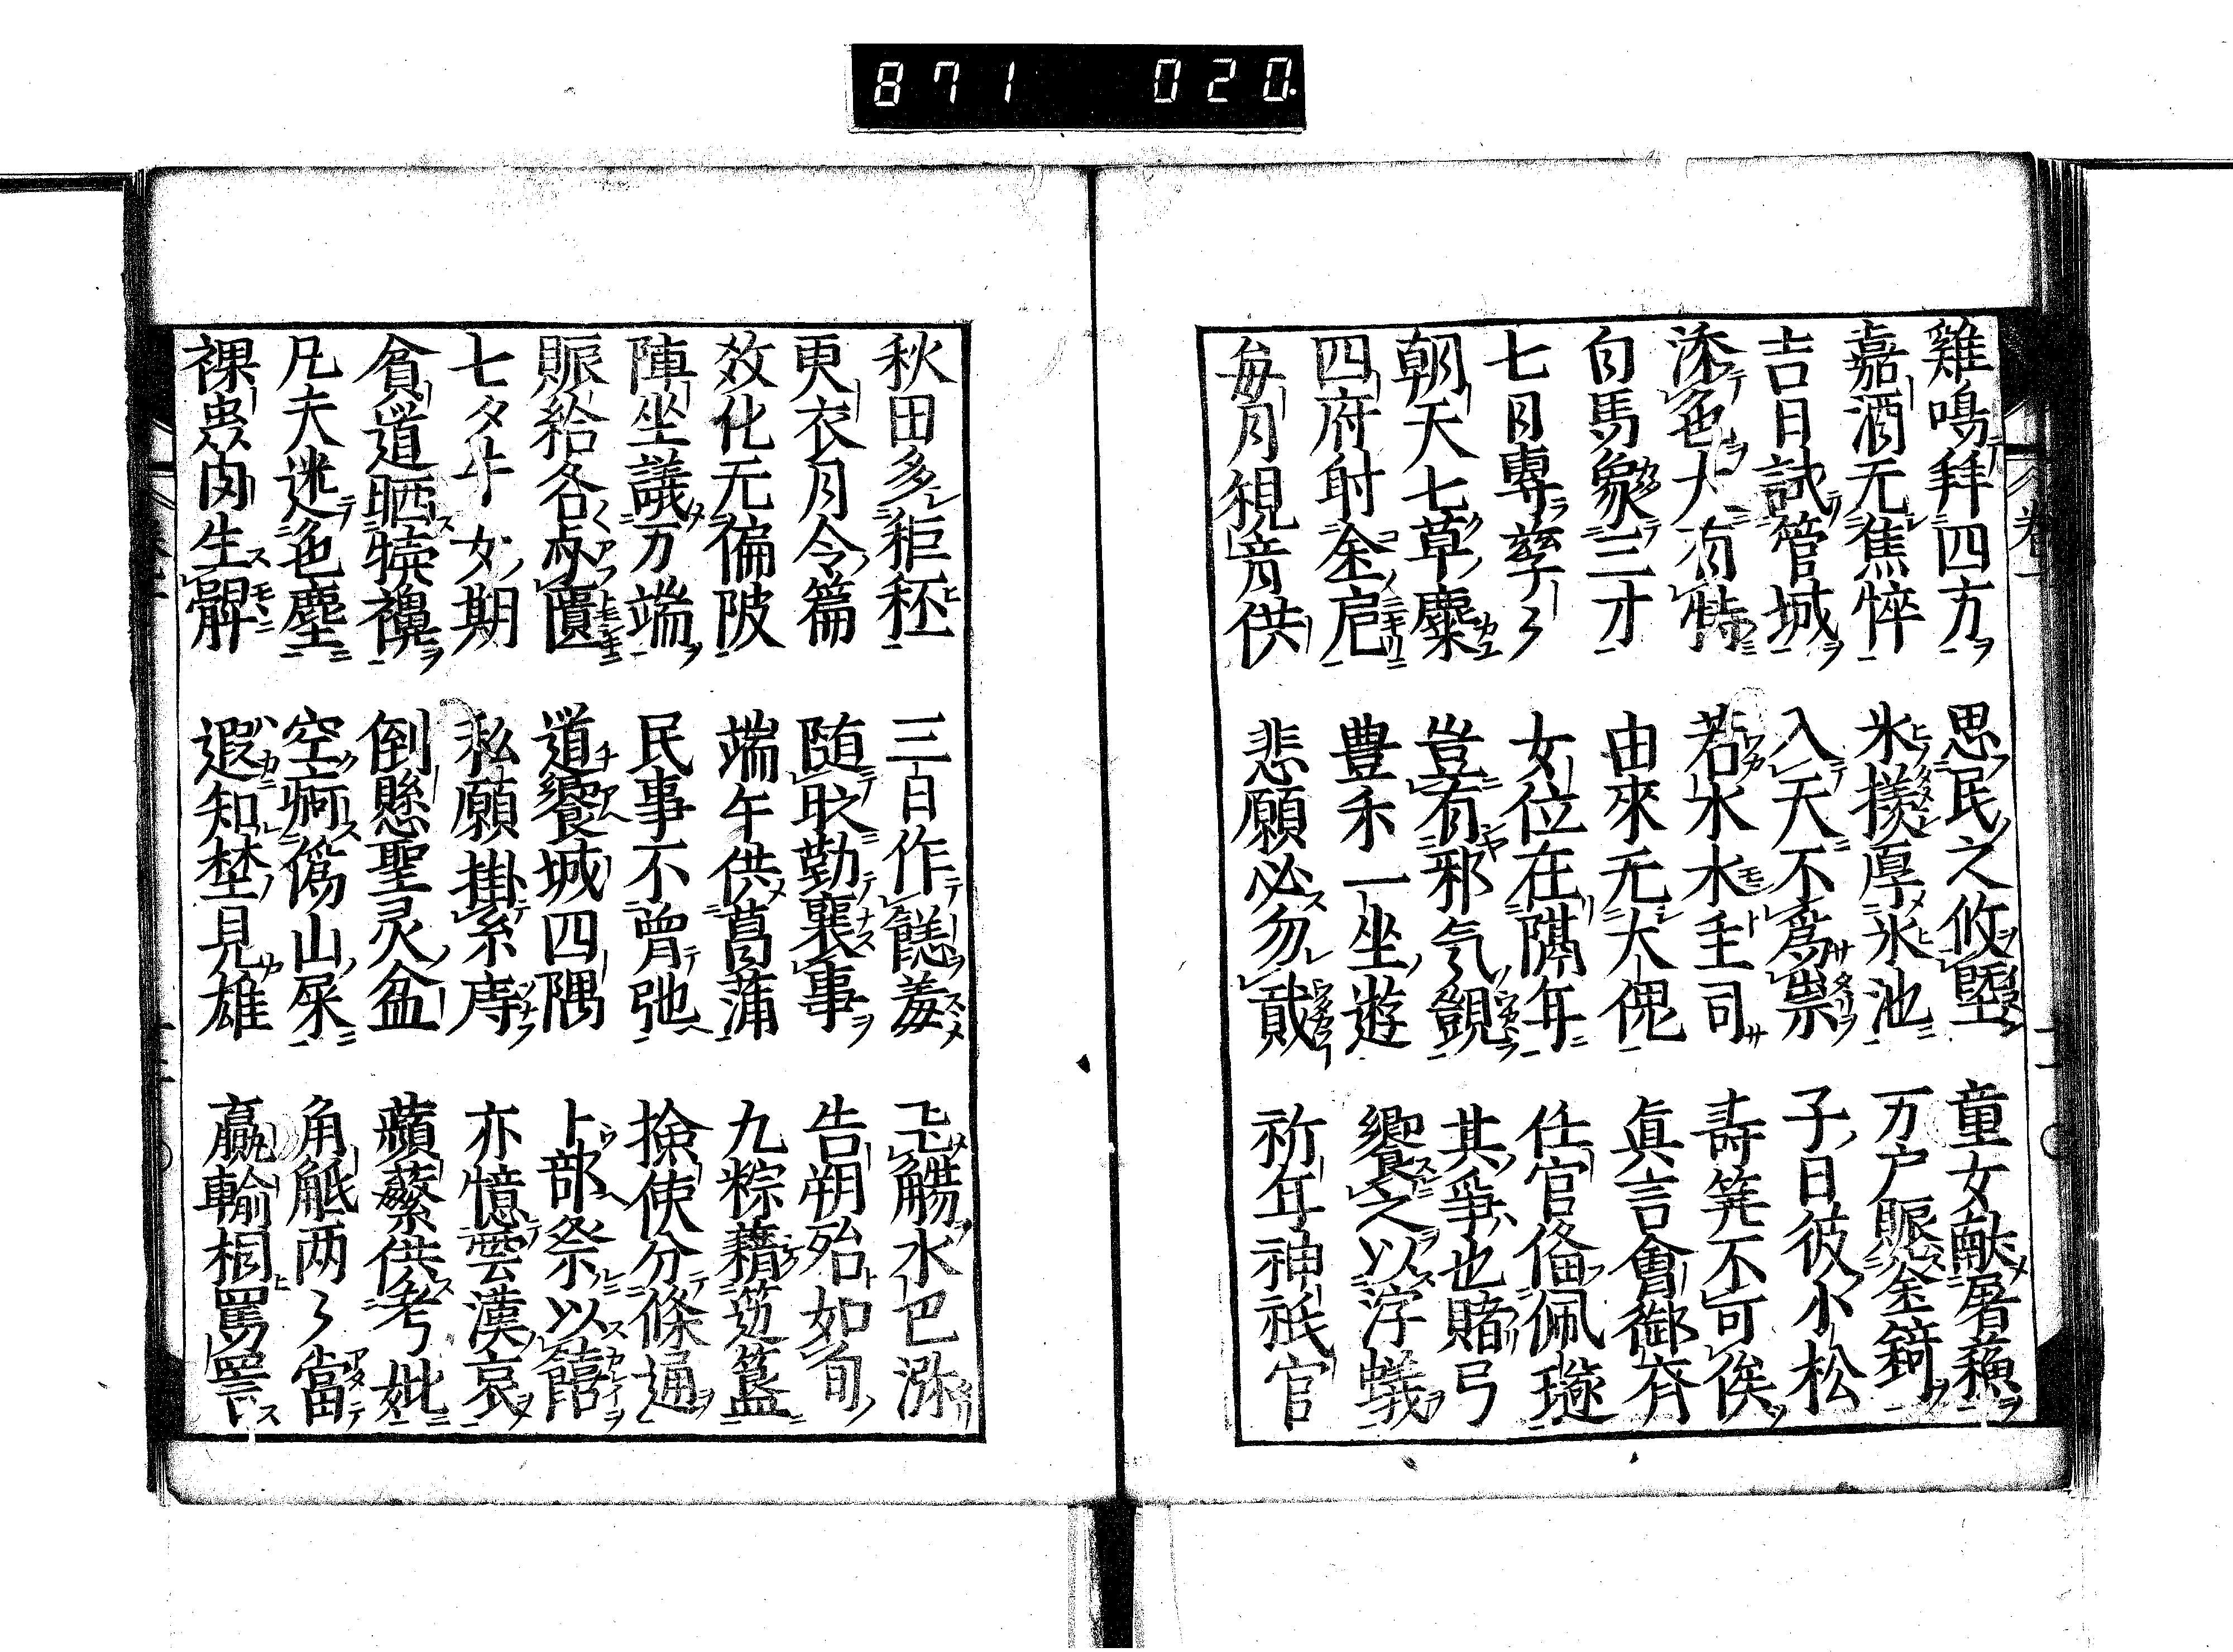 871 020
雞鳴拜四方 思民之攸墍 童女獻屠蘓
嘉酒无焦悴 氷揆厚氷池 万户賑金錡
吉日試管城 入天不為祟 子日彼小松
添色大有特 若水水主司 壽筭不可俟
白馬象三才 由來无大傀 真言會御齐
七日專孳〻 女位在隔年 仕官俻佩璲
朝天七草糜 豈有邪气覬 其爭也賭弓
四府射金卮 豊禾一坐遊 饗之以浮蟻
每月視音供 悲願必勿戝 祈年神祇官
秋田多秬秠 三日作餻羞 觴水巴
更衣月令篇 随耴勤襄事 告朔殆如旬
效化无偏陂 端午供菖蒲 九粽藉筵簋
陣坐議万端 民事不曾弛 撿使分條通
賑給各匱 道饗城四隅 卜部祭以饎
七夕牛女期 私願掛糸庤 亦憶雲漢哀
貧道晒犢襣 倒懸聖灵盆 蘋蘩供考妣
凡夫迷色塵 空痾偽山屎 角觝两〻當
裸蟲肉生髀 遐知埜見雄 贏輸相罵詈